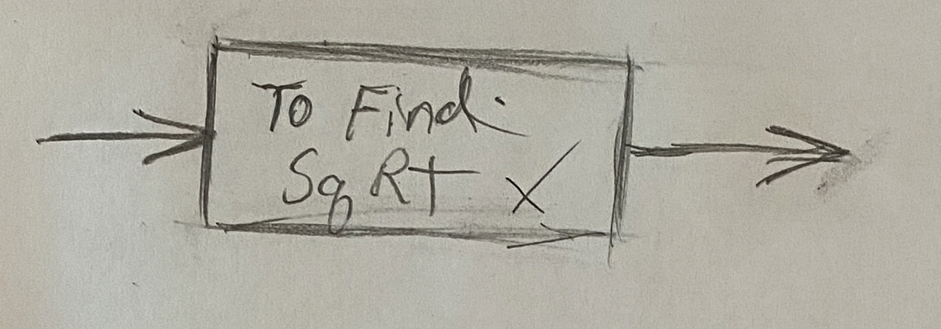 To Find
Sq Rt X